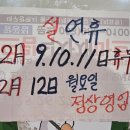 설 연휴
2월 9.10.11日 휴무
2월 12日 월요일
정상영업